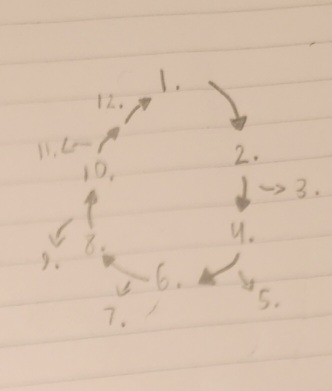 1.
2.
3.
4.
5.
6.
7.
8.
9.
10.
11.
12.